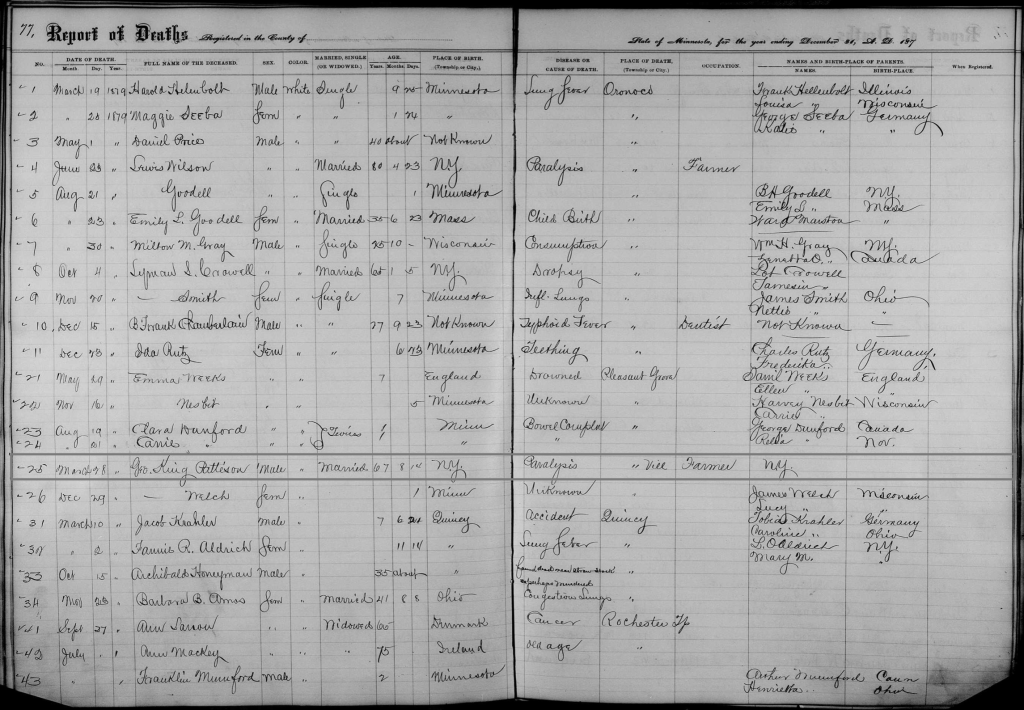 77.
Report of Deaths Registered in the County of
State of Minnesota, for the year ending December 31, A. D. 187
NO. DATE OF DEATH. Month Day. Year. FULL NAME OF THE DECEASED. SEX. COLOR. MARRIED, SINGLE (OR WIDOWED.) AGE. Years. Months Days. PLACE OF BIRTH. (Township or City.) DISEASE OR CAUSE OF DEATH. PLACE OF DEATH. (Township or City.) OCCUPATION. NAMES AND BIRTH-PLACE OF PARENTS. NAMES. BIRTH-PLACE. When Registered.
1 March 19 1879 Harold Male White Single 9 Minnesota Lung fever Oronoco Frank Illinois
Louisa " Wisconsin
2 " 1879 Maggie Seeba fem " " 1 " " George Seeba Germany
" "
3 May 1 " Daniel Price Male " " 40 about Not Known "
4 June 23 " Lewis Wilson " " Married 80 4 23 NY. Paralysis " Farmer
5 Aug 21 " Goodell " " Single 1 Minnesota " B.H. Goodell NY.
Emily L. " Mass
6 " 23 " Emily L. Goodell fem " Married 35 6 23 Mass Child Birth " Ward Marston "
7 " 30 " Milton M. Gray Male " Single 25 10 - Wisconsin Consumption " Wm H. Gray NY.
" Canada
8 Oct 4 " Lyman S. Crowell " " Married 61 5 NY. Dropsy " Lot Crowell
9 Nov 20 " — Smith fem " Single 7 Minnesota Infl- Lungs " James Smith Ohio
Nettie " "
10 Dec 15 " B. Frank Chamberlain Male " " 27 9 23 Not Known Typhoid Fever " Dentist Not Known —
11 Dec 23 " Ida Rutz Fem " " 6 23 Minnesota Teething " Charles Rutz Germany
Frederika "
21 May 29 " Emma Weeks " " 7 England Drowned Pleasant Grove Saml Weeks England
Ellen " "
22 Nov 16 " Nesbit " " 5 Minnesota Unknown " Harvey Nesbit Wisconsin
Carrie " "
23 Aug 19 " Clara Dunford " " Twins Minn Bowel Complnt " George Dunford Canada
24 " 21 " Carrie " " " " " " " Nov.
25 March 28 " Geo. King Pattison Male " Married 67 8 14 NY. Paralysis " Vill Farmer NY.
26 Dec 29 " — Welch fem " 1 Minn Unknown " James Welch Wisconsin
Lucy " "
31 March 10 " Jacob Krahler male " 7 6 24 Quincy Accident Quincy Tobias Krahler Germany
Caroline " Ohio
32 " 2 " Fannie R. Aldrich fem " 11 14 " Lung fever " L. O. Aldrich NY.
Mary M. "
33 Oct 15 " Archibald Honeyman Male " 35 about " found dead near straw stack "
perhaps murdered
34 Nov 23 " Barbara B. Amos fem " Married 41 8 8 Ohio Congestion Lungs "
41 Sept 27 " Ann " " Widowed 66 Denmark Cancer Rochester Tp
42 July " Ann Mackey " " 75 Ireland old age "
43 " " Franklin Mumford male " 2 Minnesota Arthur Mumford Cann
Henrietta " Ohio